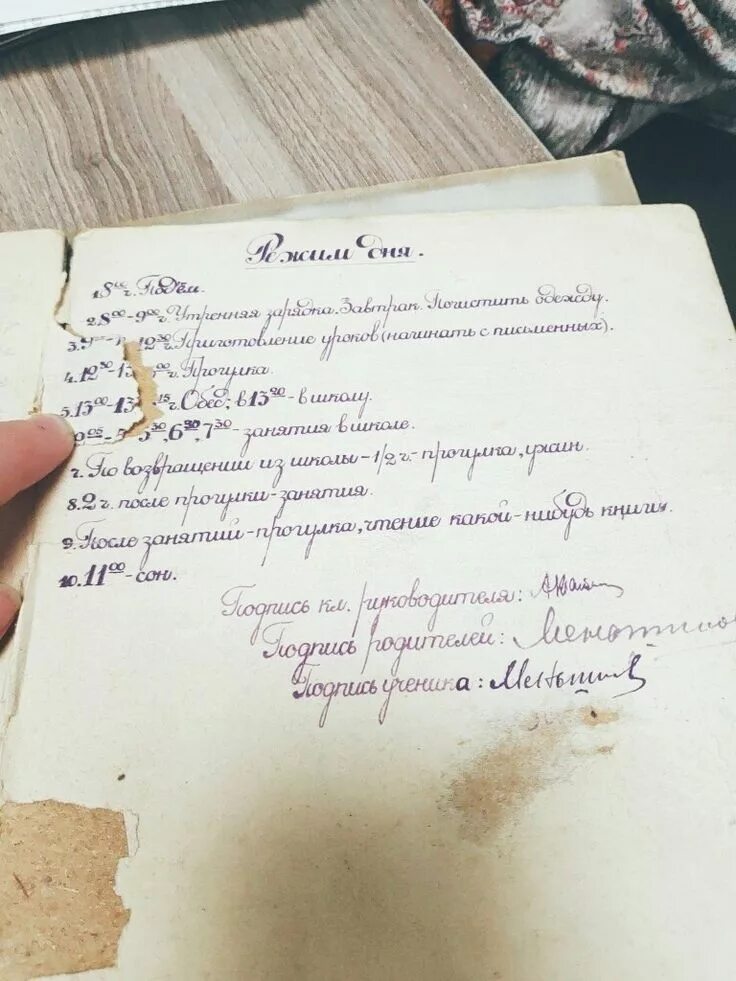 Режим дня.
1. 8⁰⁰ ч. Подъём.
2. 8⁰⁰-9⁰⁰ ч. Утренняя зарядка. Завтрак. Почистить одежду.
3. 12³⁰ Приготовление уроков (начинать с письменных).
4. 12³⁰-13 ⁰⁰ ч. Прогулка.
5. 13⁰⁰-13 ¹⁵ ч. Обед; в 13²⁰ - в школу.
³⁰, 6³⁰, 7³⁰ - занятия в школе.
7. По возвращении из школы - 1/2 ч. - прогулка, ужин.
8. 2 ч. после прогулки - занятия.
9. После занятий - прогулка, чтение какой-нибудь книги.
10. 11⁰⁰ - сон.
Подпись кл. руководителя:
Подпись родителей:
Подпись ученика: